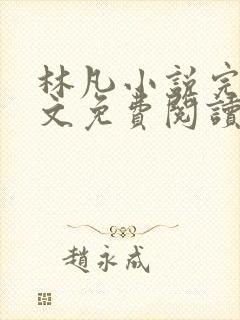 林凡小説完
文免費閱讀
趙永成